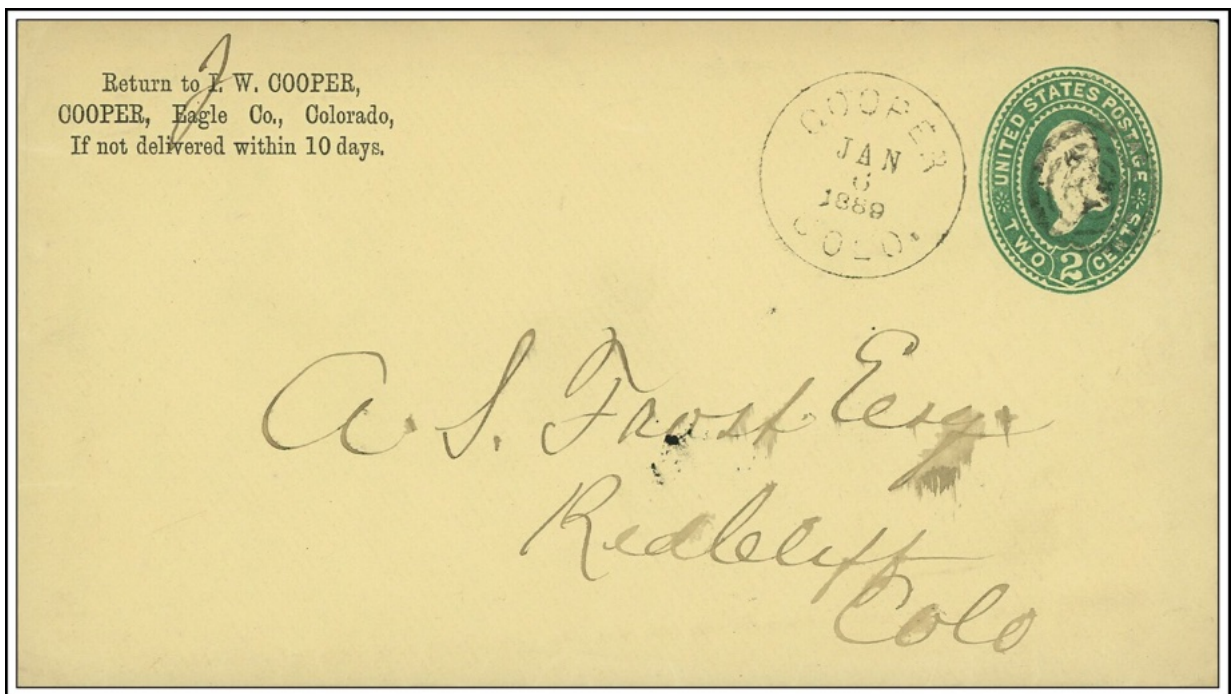 Return to I. W. COOPER,
COOPER, Eagle Co., Colorado,
If not delivered within 10 days.
J
COOPER
JAN
6
1889
COLO.
UNITED STATES POSTAGE
TWO 2 CENTS
A. S. Frost Esq.
Redcliff
Colo